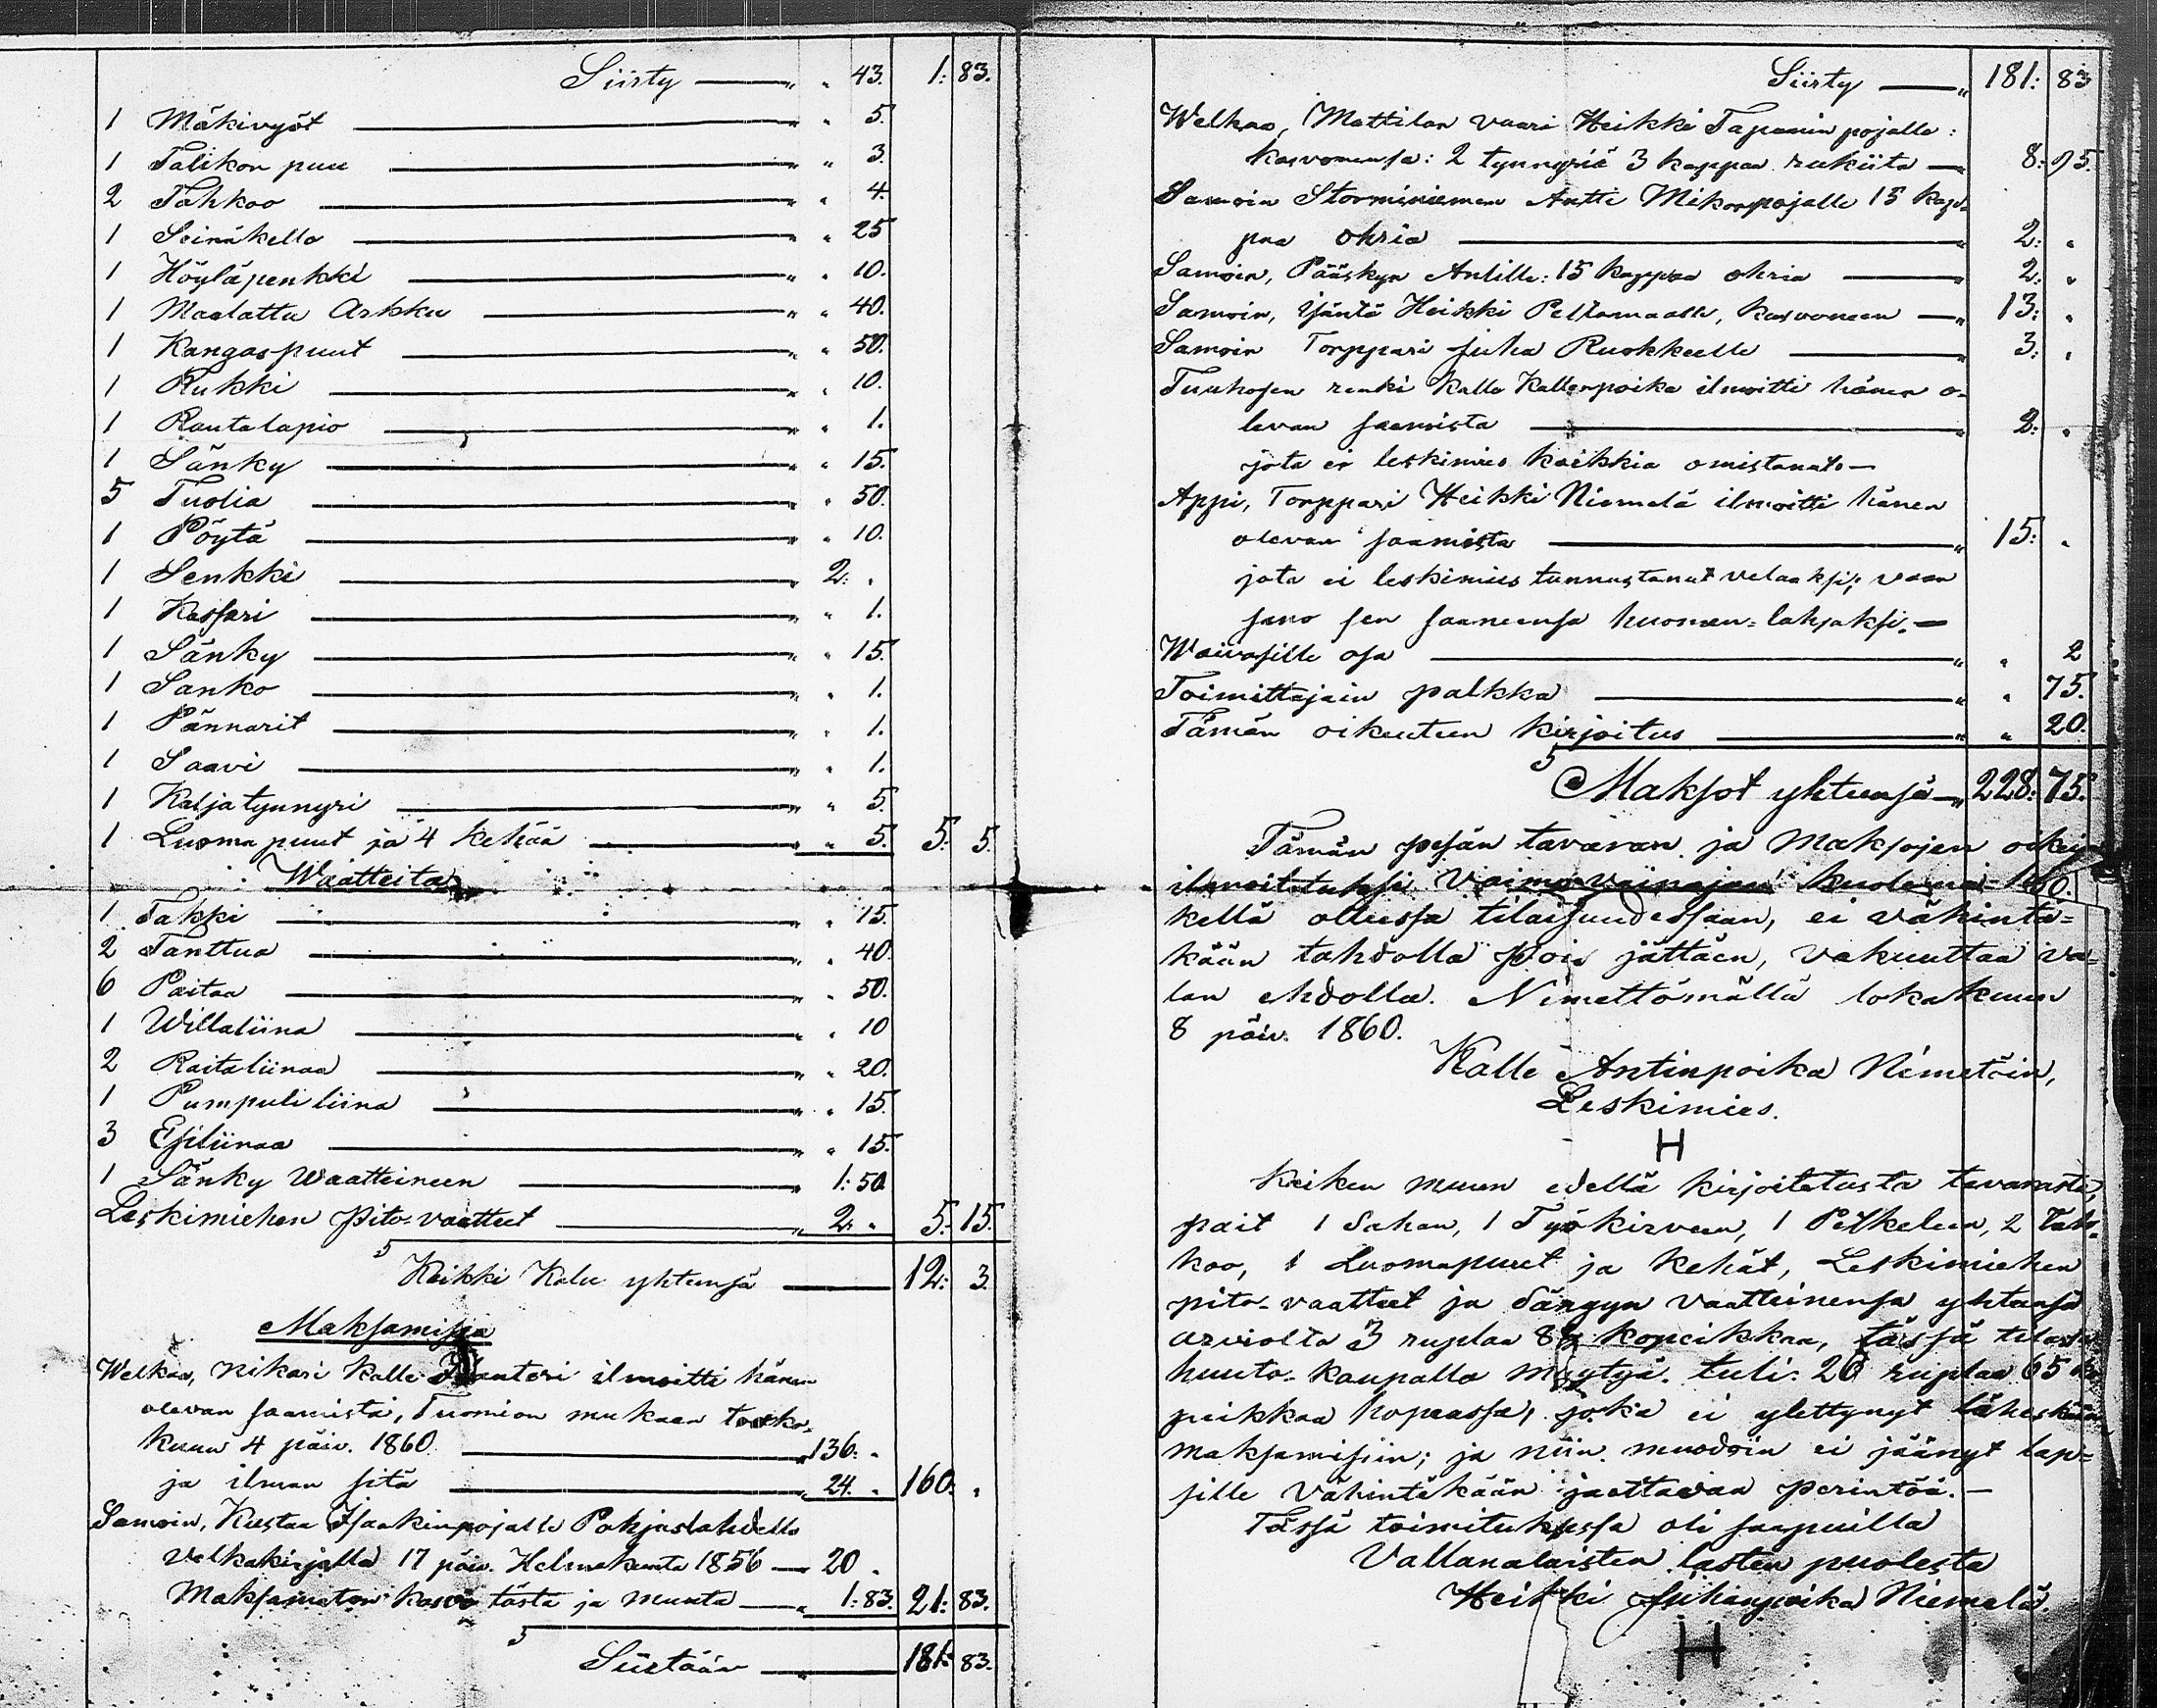 Siirty — " " 43. 1: 83.
1 Mäkivyöt — " " 5.
1 Talikon puu — " " 3.
2 Tahkoo — " " 4.
1 Seinäkello — " " 25
1 Höyläpenkki — " " 10.
1 Maalattu Arkku — " " 40.
1 Kangaspuut — " " 50.
1 Rukki — " " 10.
1 Rautalapio — " " 1.
1 Sänky — " " 15.
5 Tuolia — " " 50.
1 Pöytä — " " 10.
1 Senkki — " 2: "
1 Kassari — " " 1.
1 Sänky — " " 15.
1 Sanko — " " 1.
1 Pännarit — " " 1.
1 Saavi — " " 1.
1 Kaljatynnyri — " " 5.
1 Luomapuut ja 4 kehää — " " 5. 5: 5.
Waatteita
1 Takki — " " 15.
2 Tanttua — " " 40.
6 Paitaa — " " 50.
1 Willaliina — " " 10
2 Raitaliinaa — " " 20.
1 Pumpuliliina — " " 15.
3 Esiliinaa — " " 15.
1 Sänky Waatteineen — " 1: 50
Leskimiehen pito-vaatteet — " 2: " 5: 15.
Kaikki Kalu yhteensä — 12: 3.
Maksamisia
Welkaa, nikari Kalle ilmoitti hänen
olevan saamista, Tuomion mukaan touko-
kuun 4 päiv. 1860. — " 136: "
ja ilman sitä — " 24. " 160: "
Samoin, Kustaa Isaakinpojalle Pohjaslahdella
Velkakirjalla 17 päiv. Helmekuuta 1856 — 20 "
Maksamaton kasvo tästä ja muuta — " 1: 83. 21: 83.
Siirtään — " 181: 83.
Siirty — " 181: 83
Welkaa, Mattilan vaari Heikki Tapanin pojalle:
kasvonensa: 2 tynnyriä 3 kappaa rukiita — 8: 95.
Samoin Storminiemen Antti Mikonpojalle 15 kap-
paa ohria — " 2: "
Samoin, Pääskyn Antille: 15 kappaa ohria — " 2: "
Samoin, Isäntä Heikki Peltomaalle, kasvoneen — " 13: "
Samoin Torppari Juha Ruokkeelle — " 3: "
renki Kalle Kallenpoika ilmoitti hänen o-
levan saamista — " 2: "
jota ei leskimies kaikkia omistanut. —
Appi, Torppari Heikki Niemelä ilmoitti hänen
olevan saamista — " 15: "
jota ei leskimies tunnustanut velaaksi; vaan
sano sen saaneensa huomen-lahjaksi. —
Waivasille osa — " " 2
Toimittajain palkka — " " 75.
Tämän oikeuteen kirjoitus — " " 20.
Maksot yhteensä — " 228: 75.
Tämän pesän tavaran ja Maksojen oikein
ilmoitetuksi Vaimo-vainajan kuolema
kellä ollessa tilaisuudessaan, ei vähintä-
kään tahdolla pois jättäen, vakuuttaa va-
lan ehdolla. Nimettömällä lokakuun
8 päiv. 1860.
Kalle Antinpoika Nimetöin,
Leskimies.
H
Kaiken muun edellä kirjoitetusta tavarasta,
pait 1 Sahan, 1 Työkirveen, 1 Petkeleen, 2 Tah-
koo, 1 Luomapuut ja Kehät, Leskimiehen
pito-vaatteet ja Sängyn Vaatteinensa yhteensä
arviolta 3 ruplaa kopeikkaa, tässä tilassa
huuto-kaupalla myytyä. tuli: 26 ruplaa 65 ko
peikkaa hopeassa, joka ei ylettynyt läheskään
maksamisiin; ja niin muodoin ei jäänyt lap-
sille Vähintäkään jaettavaa perintöä. —
Tässä toimituksessa oli saapuilla
Vallanalaisten lasten puolesta
Heikki Juhanpoika Niemelä.
H